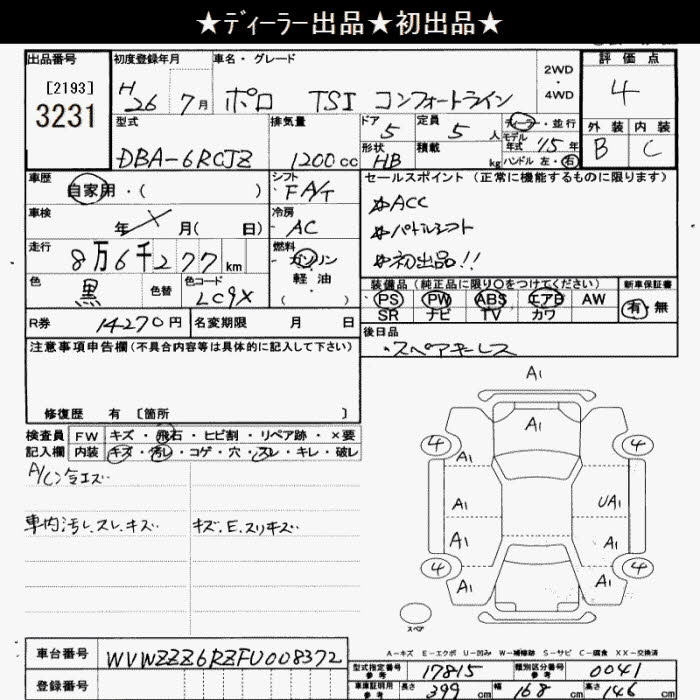 ★ディーラー出品★初出品★
出品番号 初度登録年月 車名・グレード 2WD・4WD 評価点
[2193]
3231
H26 7月 ポロ TSI コンフォートライン 4
型式 排気量 ドア 定員 ディーラー・並行 外装 内装
DBA-6RCJZ 1200cc 5 5人 モデル年式 '15年 B C
形状 HB 積載 kg ハンドル 左・右
車歴 シフト セールスポイント(正常に機能するものに限ります)
自家用・( ) FA/T
車検 冷房 ACC
年 月( 日) AC パドルシフト
走行 燃料 初出品!!
8万6千277km ガソリン
軽油
( )
色 色替 色コード 装備品(純正品に限り〇をつけてください) 新車保証書
黒 LC9X PS PW ABS エアB AW 有・無
SR ナビ TV カワ
R券 14270円 名変期限 月 日 後日品
・スペアキーレス
注意事項申告欄(不具合内容等は具体的に記入して下さい)
修復歴 有 〔箇所 〕
検査員 FW キズ・飛石・ヒビ割・リペア跡・×要
記入欄 内装 キズ・汚レ・コゲ・穴・スレ・キレ・破レ
A1
A1
4 4
A1 A1
A1 UA1
A1 A1
4 4
A1 A1
スペア
車内汚レ.スレ.キズ キズ.E.スリキズ
A-キズ E-エクボ U-凹み W-補修跡 S-サビ C-腐食 XX-交換済
車台番号 WVWZZZ6RZFU008372
型式指定番号 参考 17815 類別区分番号 参考 0041
登録番号 車庫証明用 参考 長さ 399cm 幅 168cm 高さ 146cm